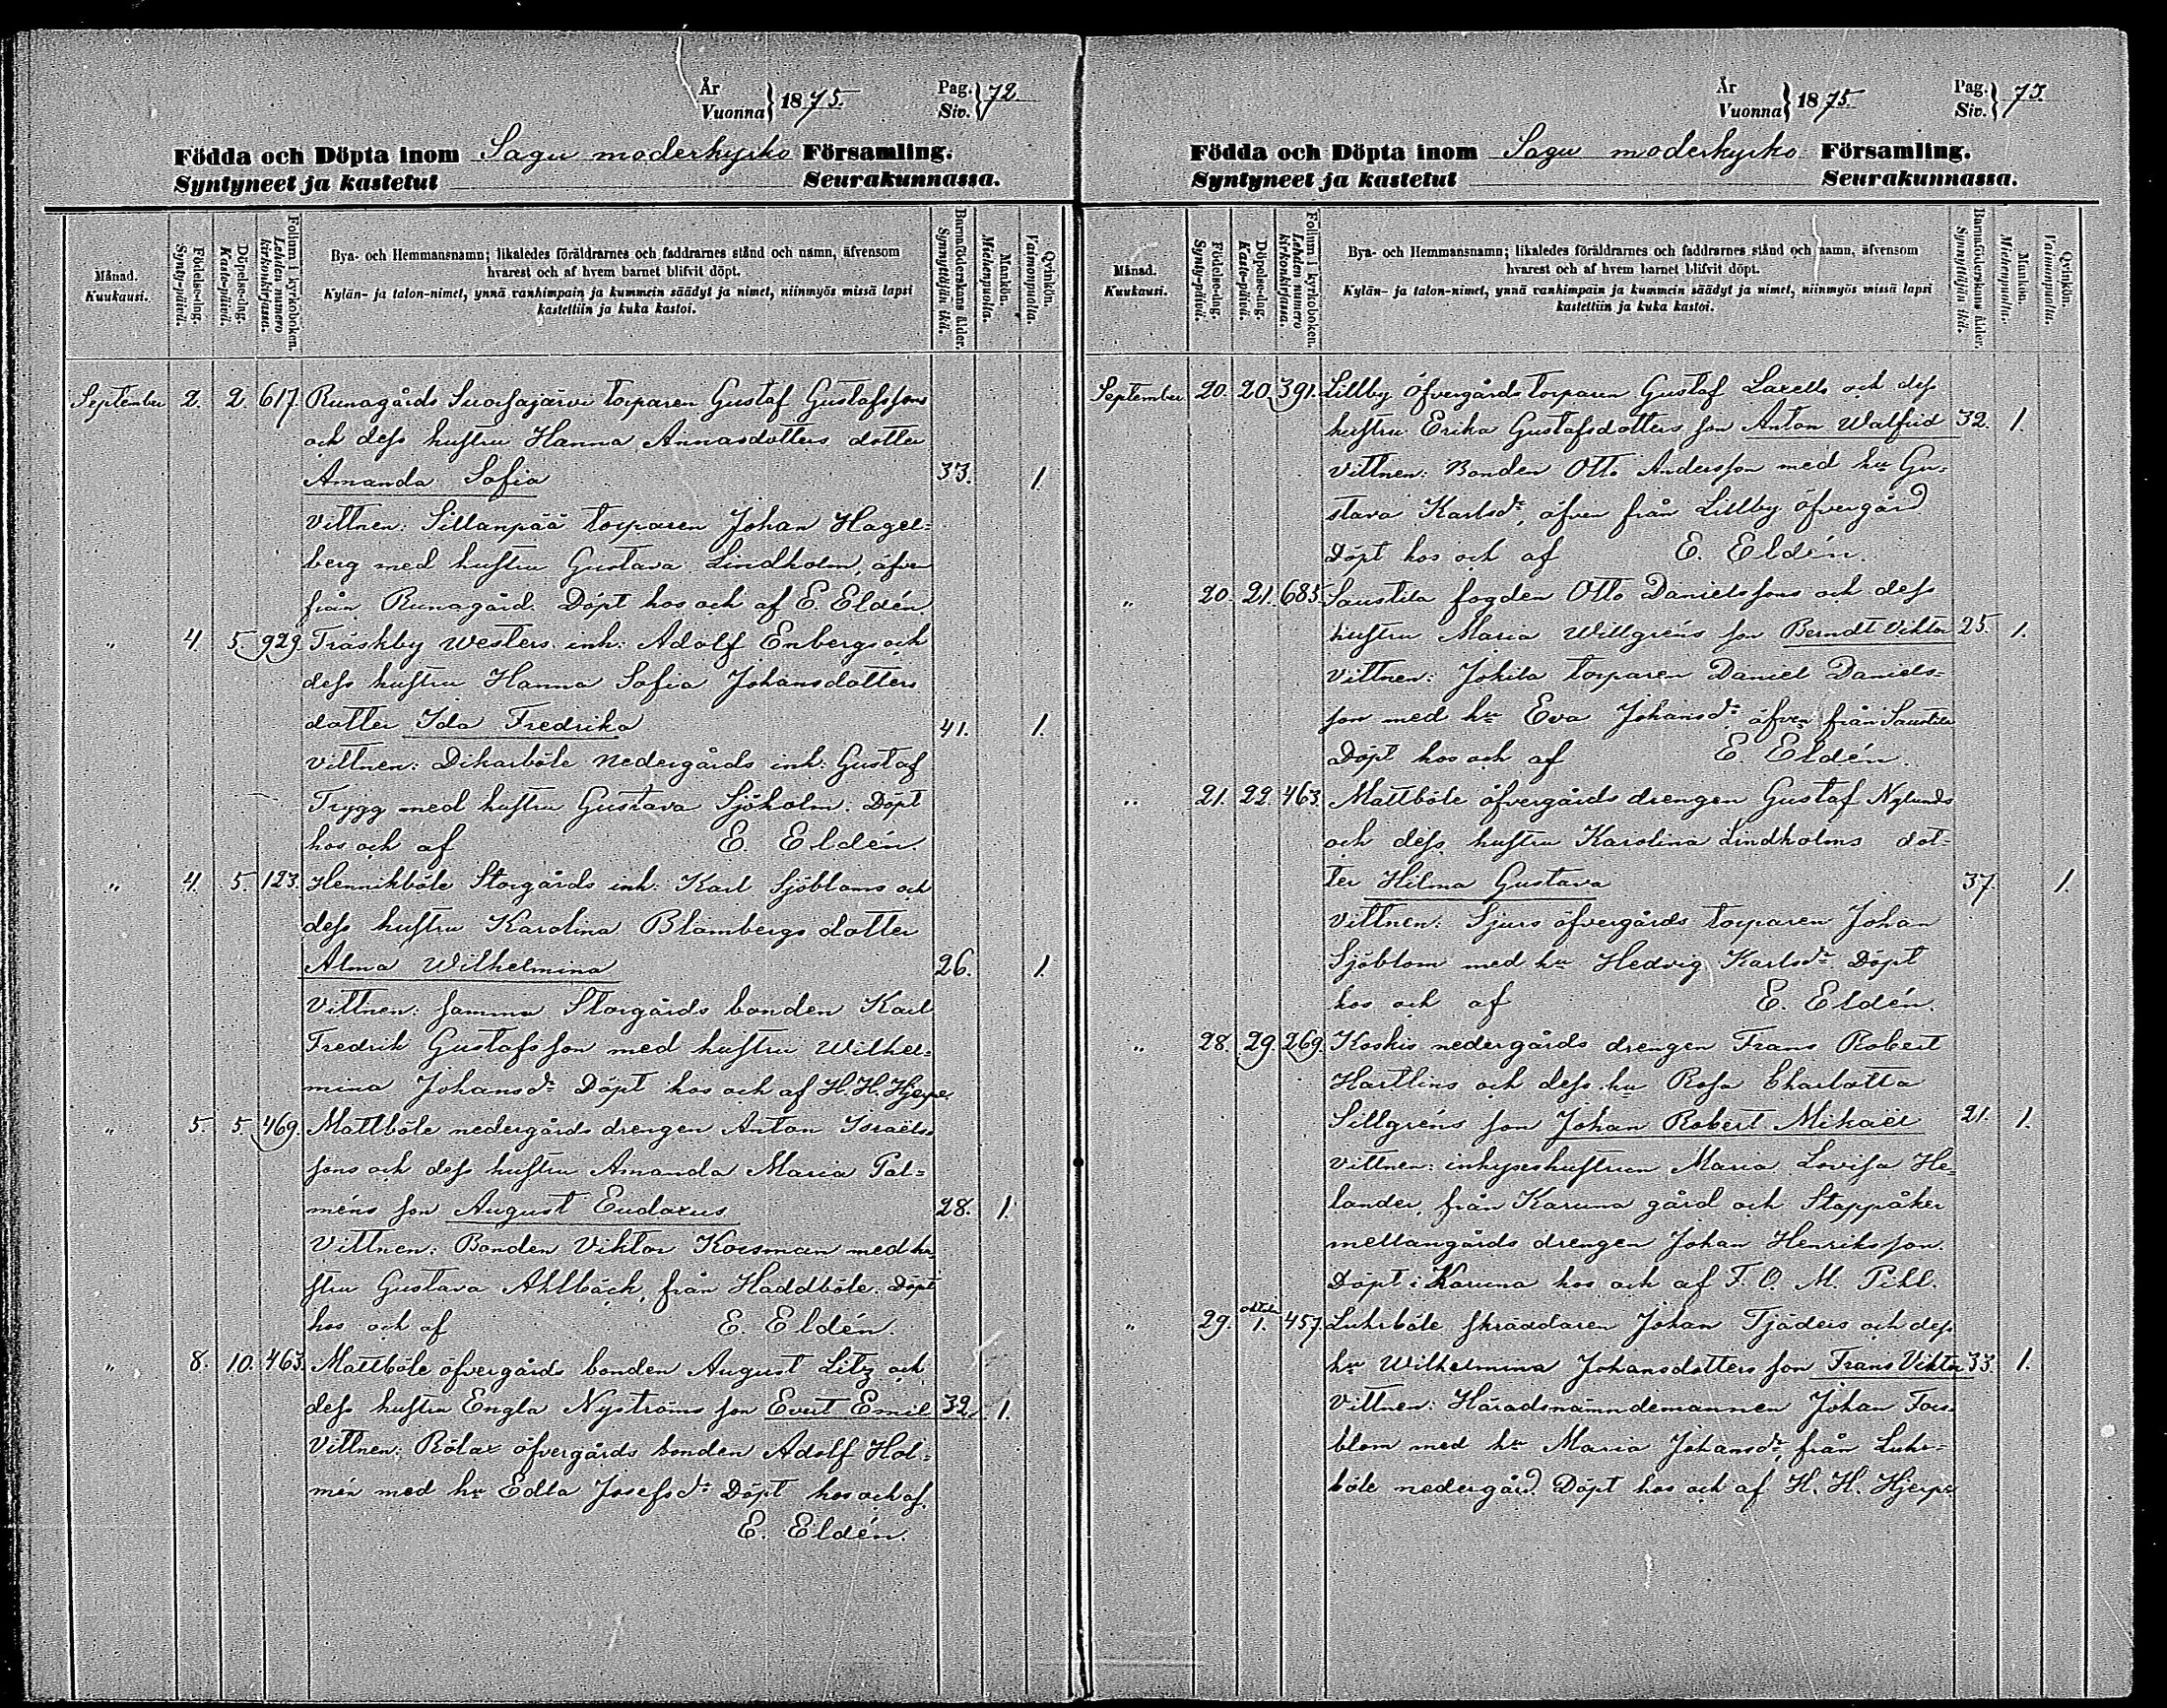 År
Vuonna } 1875.
Pag.
Siv. } 72.
Födda och Döpta inom Sagu moderkyrko Församling.
Syntyneet ja kastetut Seurakunnassa.
Månad.
Kuukausi.
Födelse-dag.
Synty-päivä.
Döpelse-dag.
Kaste-päivä.
Folium i kyrkoboken.
Lehden numero kirkonkirjassa.
Bya- och Hemmansnamn; likaledes föräldrarnes och faddrarnes stånd och namn, äfvensom
hvarest och af hvem barnet blifvit döpt.
Kylän- ja talon-nimet, ynnä vanhimpain ja kummein säädyt ja nimet, niinmyös missä lapsi
kastettiin ja kuka kastoi.
Barnaföderskans ålder.
Synnyttäjän ikä.
Mankön.
Miehenpuolia.
Qvinkön.
Vaimonpuolia.
September 2. 2. 617. Runagårds Suosajärvi torparen Gustaf Gustafssons
och dess hustru Hanna Annasdotters dotter
Amanda Sofia 33. 1.
Vittnen: Sillanpää torparen Johan Hagel=
berg med hustru Gustava Lindholm, äfven
från Runagård. Döpt hos och af E. Eldén
" 4. 5. 929. Träskby Westers inh: Adolf Enbergs och
dess hustru Hanna Sofia Johansdotters
dotter Ida Fredrika 41. 1.
Vittnen: Dikarböle Nedergårds inh: Gustaf
Trygg med hustru Gustava Sjöholm. Döpt
hos och af E. Eldén.
" 4. 5. 123. Henrikböle Storgårds inh: Karl Sjöbloms och
dess hustru Karolina Blombergs dotter
Alma Wilhelmina 26. 1.
Vittnen: samma Storgårds bonden Karl
Fredrik Gustafsson med hustru Wilhel=
mina Johansdr Döpt hos och af H. H. Hjerpe.
" 5. 5. 469. Mattböle nedergårds drengen Anton Israels=
sons och dess hustru Amanda Maria Pal=
méns son August Eudoxus 28. 1.
Vittnen: Bonden Viktor Korsman med hu
stru Gustava Ahlbäck, från Haddböle. Döpt
hos och af E. Eldén.
" 8. 10. 463. Mattböle öfvergårds bonden August Litz och
dess hustru Engla Nyströms son Evert Emil 32. 1.
Vittnen: Rölax öfvergårds bonden Adolf Hol=
mén med hu Edla Josefsdr Döpt hos och af.
E. Eldén.
År
Vuonna } 1875.
Pag.
Siv. } 73.
Födda och Döpta inom Sagu moderkyrko Församling.
Syntyneet ja kastetut Seurakunnassa.
Månad.
Kuukausi.
Födelse-dag.
Synty-päivä.
Döpelse-dag.
Kaste-päivä.
Folium i kyrkoboken.
Lehden numero kirkonkirjassa.
Bya- och Hemmansnamn; likaledes föräldrarnes och faddrarnes stånd och namn, äfvensom
hvarest och af hvem barnet blifvit döpt.
Kylän- ja talon-nimet, ynnä vanhimpain ja kummein säädyt ja nimet, niinmyös missä lapsi
kastettiin ja kuka kastoi.
Barnaföderskans ålder.
Synnyttäjän ikä.
Mankön.
Miehenpuolia.
Qvinkön.
Vaimonpuolia.
September 20. 20. 391. Lillby öfvergårds torparen Gustaf Laxells och dess
hustru Erika Gustafsdotters son Anton Walfrid 32. 1.
Vittnen: Bonden Otto Andersson med hu Gu=
stava Karlsdr, äfven från Lillby öfvergård
Döpt hos och af E. Eldén.
" 20. 21. 685. Saustila fogden Otto Danielssons och dess
hustru Maria Willgréns son Berndt Viktor 25. 1.
Vittnen: Jokila torparen Daniel Daniels=
son med hu Eva Johansdr äfven från Saustila
Döpt hos och af E. Eldén.
" 21. 22. 463. Mattböle öfvergårds drengen Gustaf Nylunds
och dess hustru Karolina Lindholms dot=
ter Hilma Gustava 37. 1.
Vittnen: Sjurs öfvergårds torparen Johan
Sjöblom med hu Hedvig Karlsdr Döpt
hos och af E. Eldén.
" 28. 29. 269. Koskis nedergårds drengen Frans Robert
Hartlins och dess hu Rosa Charlotta
Sillgréns son Johan Robert Mikaël 21. 1.
Vittnen: inhyseshustrun Maria Lovisa He=
lander, från Karuna gård och Stappåker
mellangårds drengen Johan Henriksson.
Döpt i Karuna hos och af F. O. M. Pihl.
" 29. oktober 1. 457. Luhrböle skräddaren Johan Tjäders och dess
hu Wilhelmina Johansdotters son Frans Viktor 33. 1.
Vittnen: Häradsnämndemannen Johan Fors=
blom med hu Maria Johansdr från Luhr=
böle nedergård. Döpt hos och af H. H. Hjerpe